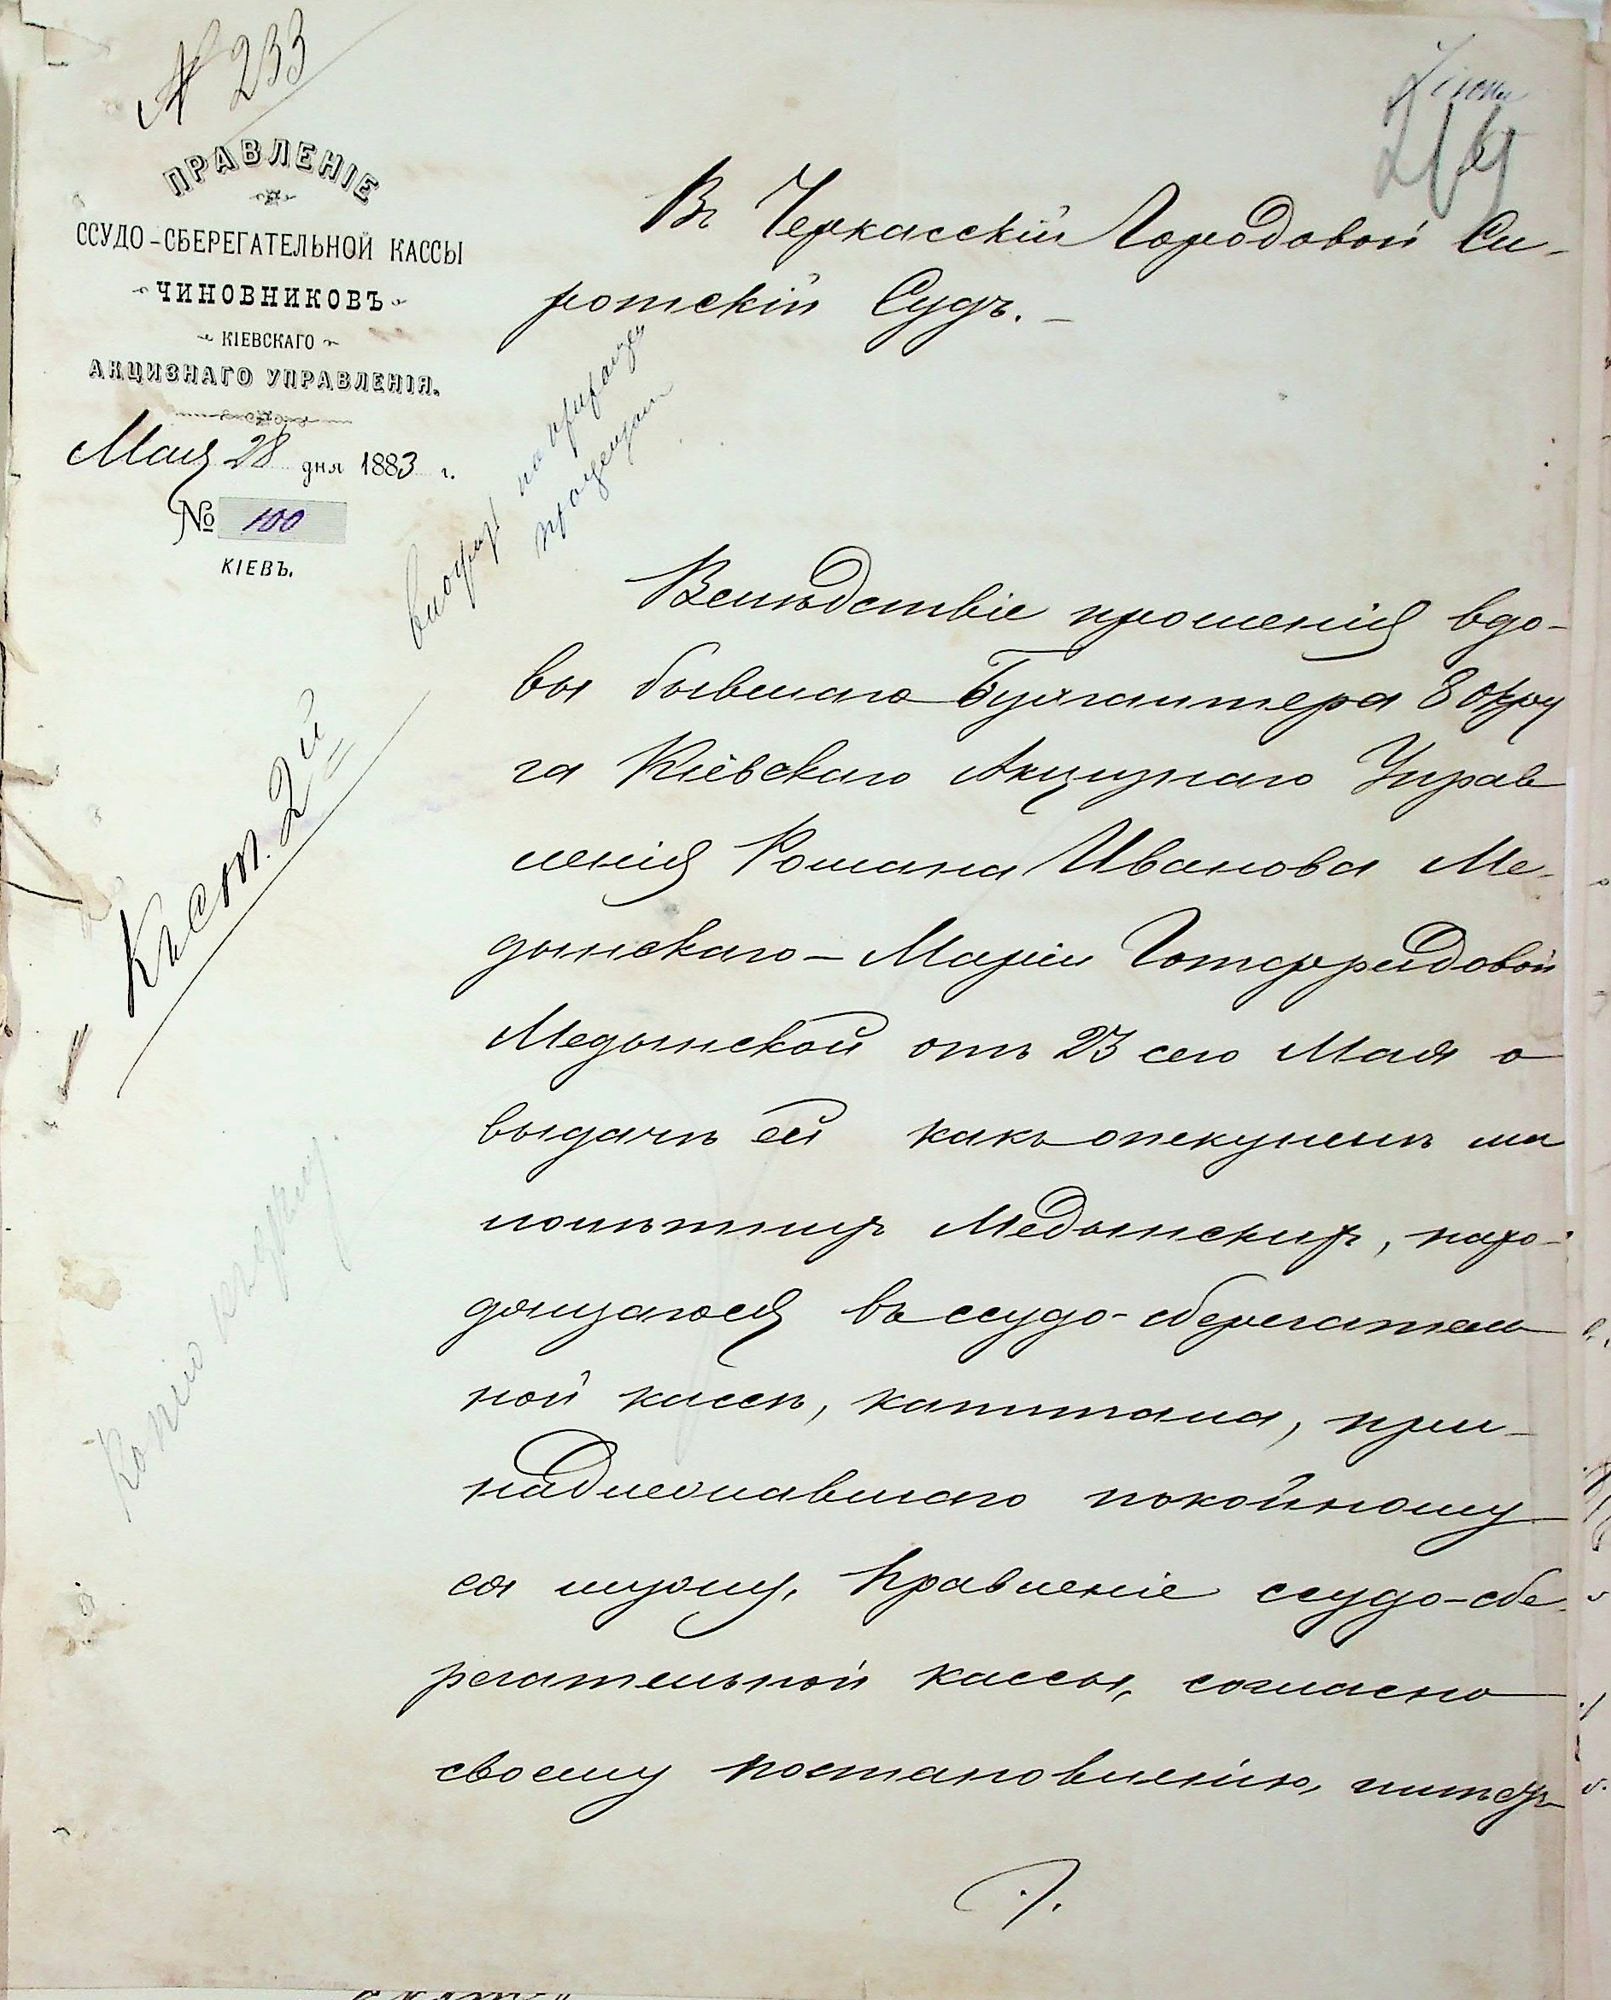 № 233
ПРАВЛЕНІЕ
ССУДО-СБЕРЕГАТЕЛЬНОЙ КАССЫ
ЧИНОВНИКОВЪ
КІЕВСКАГО
АКЦИЗНАГО УПРАВЛЕНІЯ.
Мая 28 дня 1883 г.
№ 100
КІЕВЪ.
Въ Черкасскій Городовой Си-
ротскій Судъ.
Къ ст. 2й
Копію къ дѣлу
Вслѣдствіе прошенія вдо-
вы бывшаго Бухгалтера 8 окру
га Кіевскаго Акцизнаго Управ
ленія Романа Иванова Ме-
дынскаго – Маріи Готфридовой
Медынской отъ 23 сего Мая о
выдачѣ ей какъ опекуншѣ ма
лолѣтнихъ Медынскихъ, нахо-
дящагося въ ссудо-сберегатель
ной кассѣ, капитала, при-
надлежавшаго покойному
ея мужу, Правленіе ссудо-сбе
регательной кассы, согласно
своему постановленію,